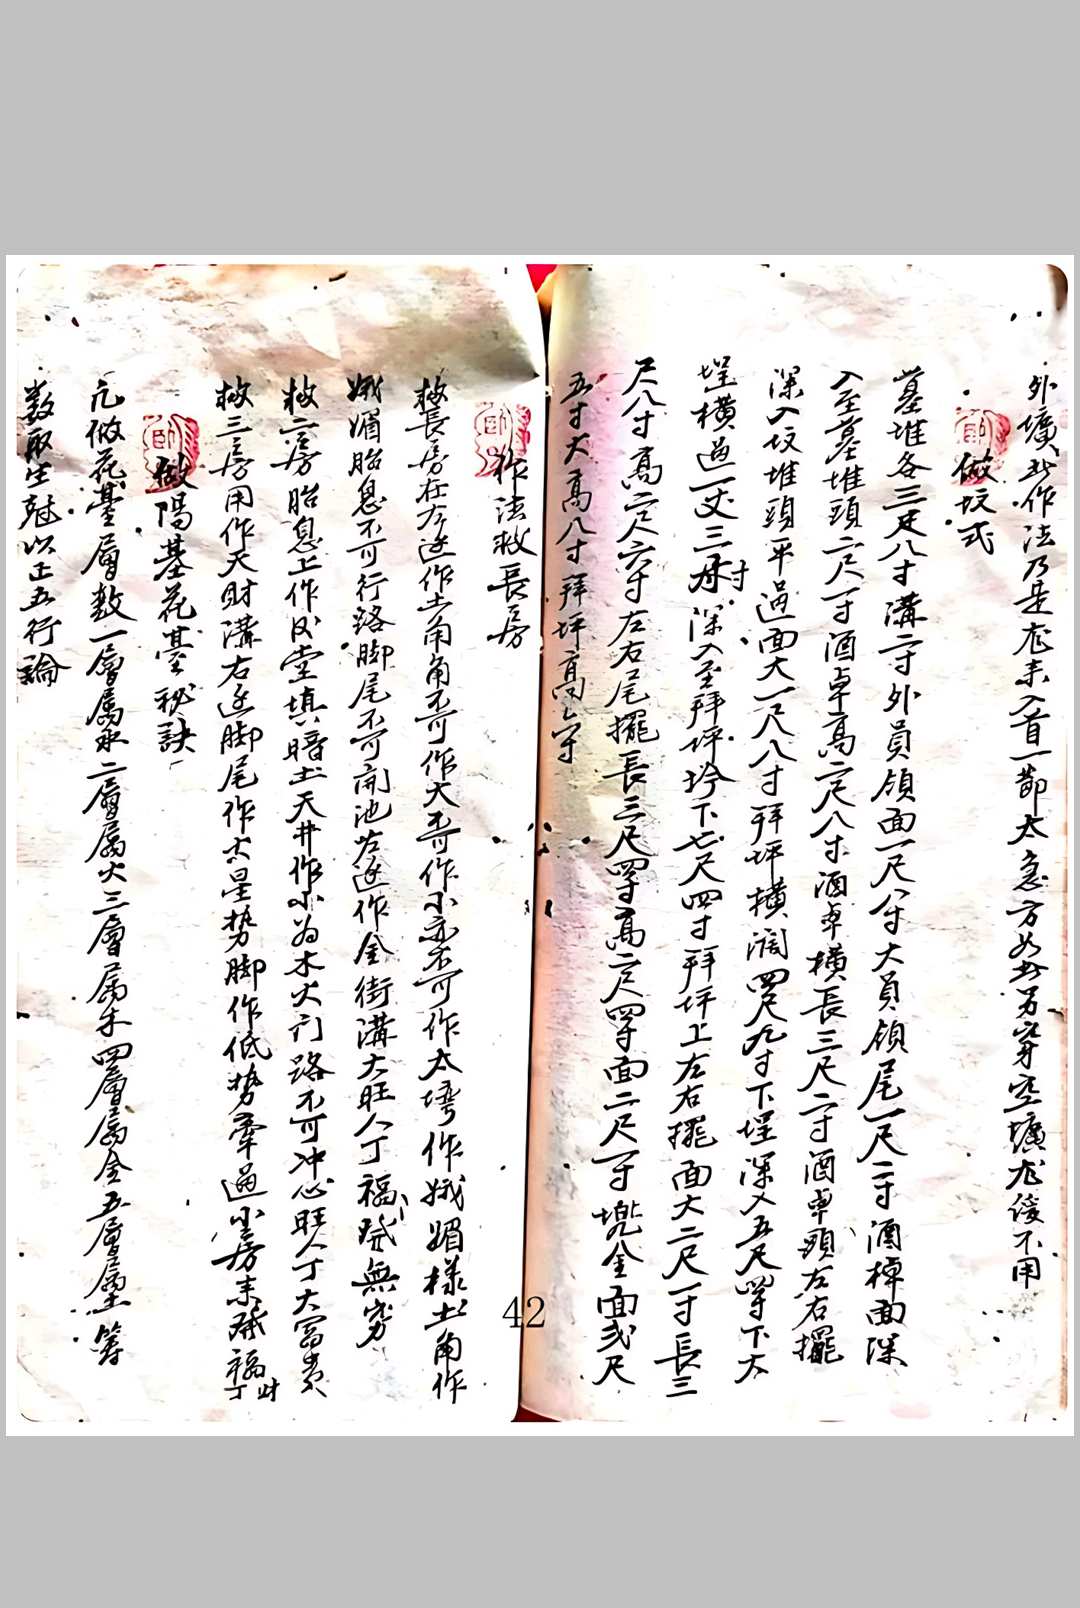 外壙此作法乃是龙来入首一節太急方如此另穿空壙龙緩不用
做坟式
墓堆各三尺八寸溝二寸外員領面一尺八寸大員領尾一尺二寸酒棹面深
入至墓堆頭二尺一寸酒卓高二尺八寸酒卓橫長三尺二寸酒卓頭左右擺
深入坟堆頭平過面大一尺八寸拜坪橫濶四尺九寸下埕深入五尺四寸下大
埕橫過一丈三寸深入至拜坪坽下七尺四寸拜坪上左右擺面大二尺一寸長三
尺八寸高二尺六寸左右尾擺長三尺四寸高二尺四寸面二尺一寸兠金面弍尺
五寸大高八寸拜坪高二寸
作法救長房
救長房在左边作土角角不可作大不可作小亦不可作太塆作娥媚樣土角作
娥媚胎息不可行路脚尾不可開池右边作金街溝大旺人丁福無窮
救二房胎息上作堂填暗土天井作小为木火门路不可冲心旺人丁大富貴
救三房用作天財溝右边脚尾作太星势脚作低势牽過小房來福財丁
做陽基花基秘訣
凡做花基層数一層属水二層属火三層属木四層属金五層属土筭
数取生尅以正五行論
42